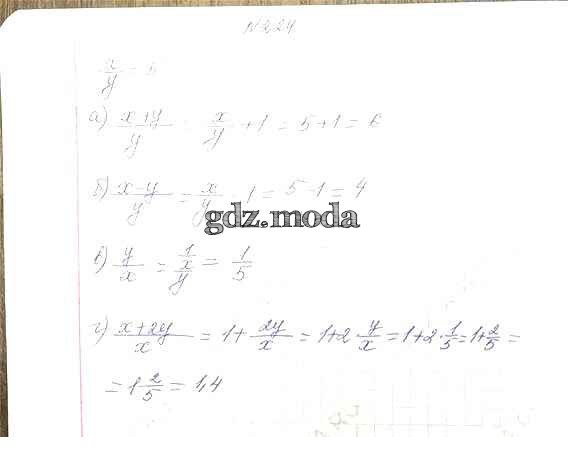 N 2.24
x/y = 5
а) (x+y)/y = x/y + 1 = 5+1 = 6
б) (x-y)/y = x/y - 1 = 5-1 = 4
gdz.moda
в) y/x = 1/(x/y) = 1/5
г) (x+2y)/x = 1+ 2y/x = 1+2 y/x = 1+2·1/5 = 1+2/5 =
= 1 2/5 = 1,4